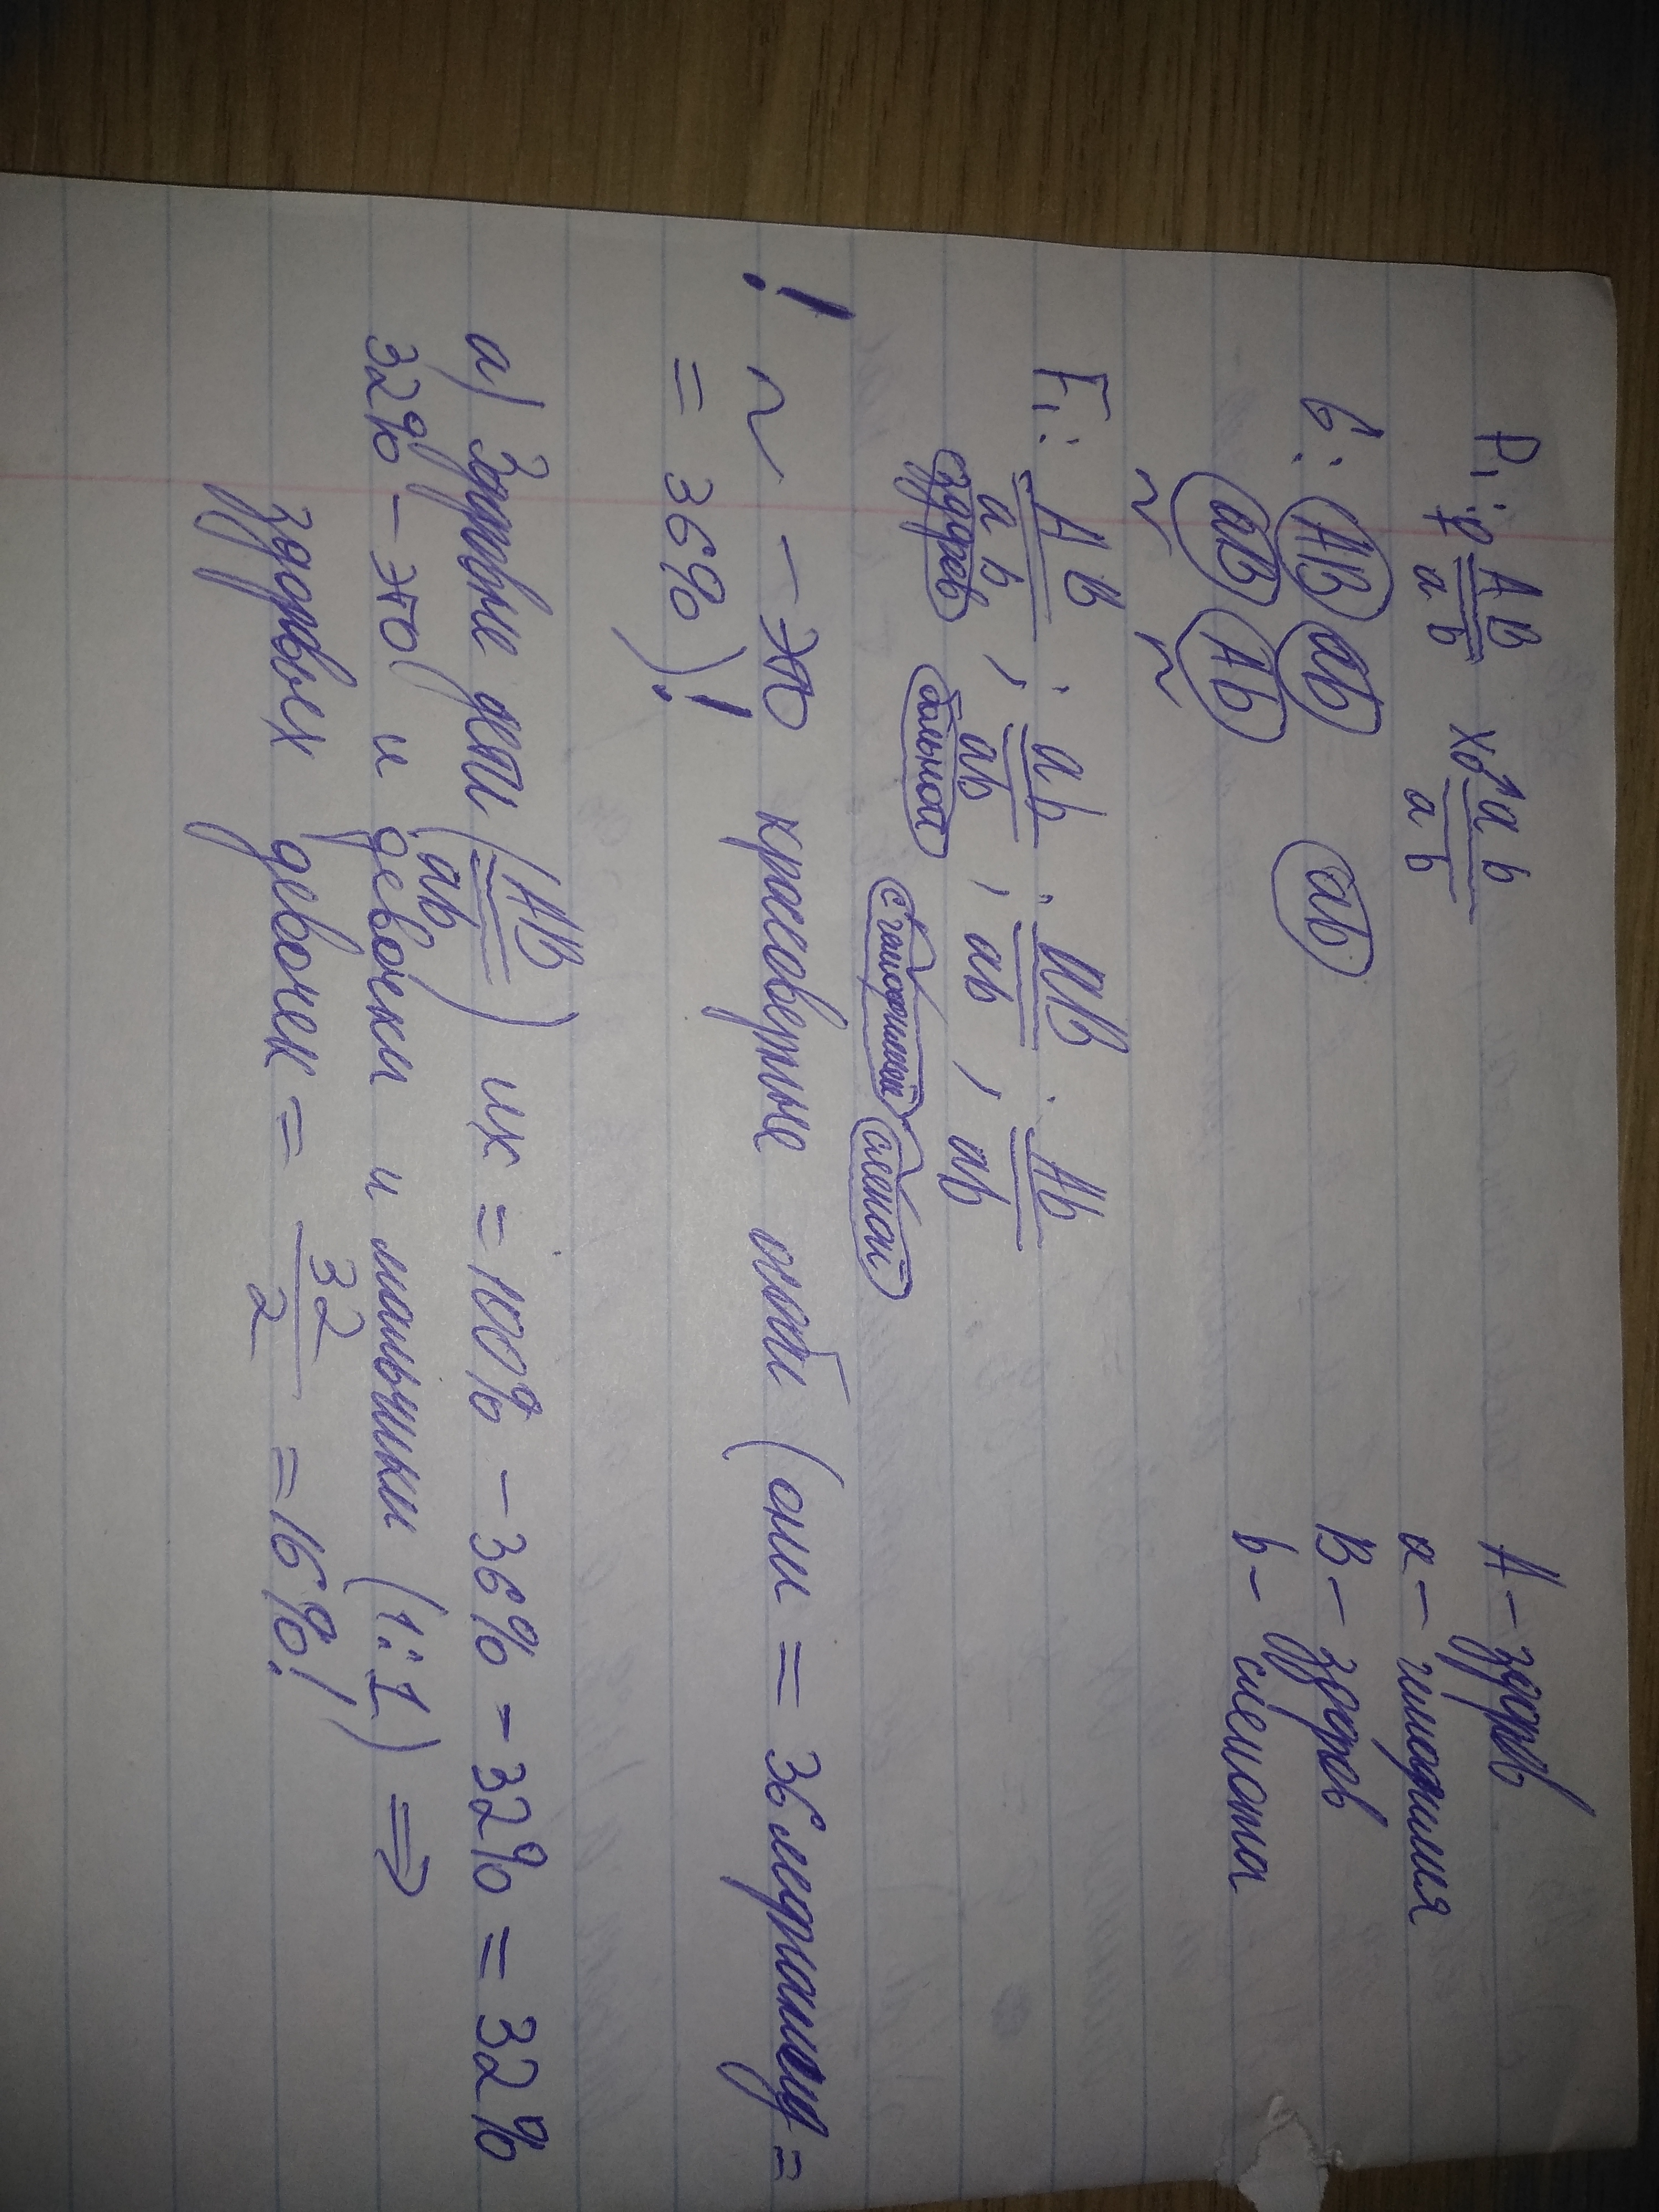 P₁: ♀ AB х ♂ ab
ab ab
A – здоров
a – гемофилия
B – здоров
b – слепота
G: AB ab ab
aB Ab
~ ~
F₁: AB ; ab ; aB ; Ab
ab , ab , ab , ab
здоров больной с гемофилией слепой
! ~ – это кроссоверные (они = 36 морганиды =
= 36%)!
а) Здоровые дети (AB/ab) их = 100% – 36% – 32% = 32%
32% – это и девочки и мальчики (1:1) ⇒
здоровых девочек = 32/2 = 16%!